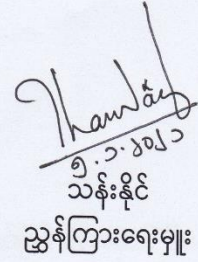 ၅.၁.၂၀၂၁
သန်းနိုင်
ညွှန်ကြားရေးမှူး